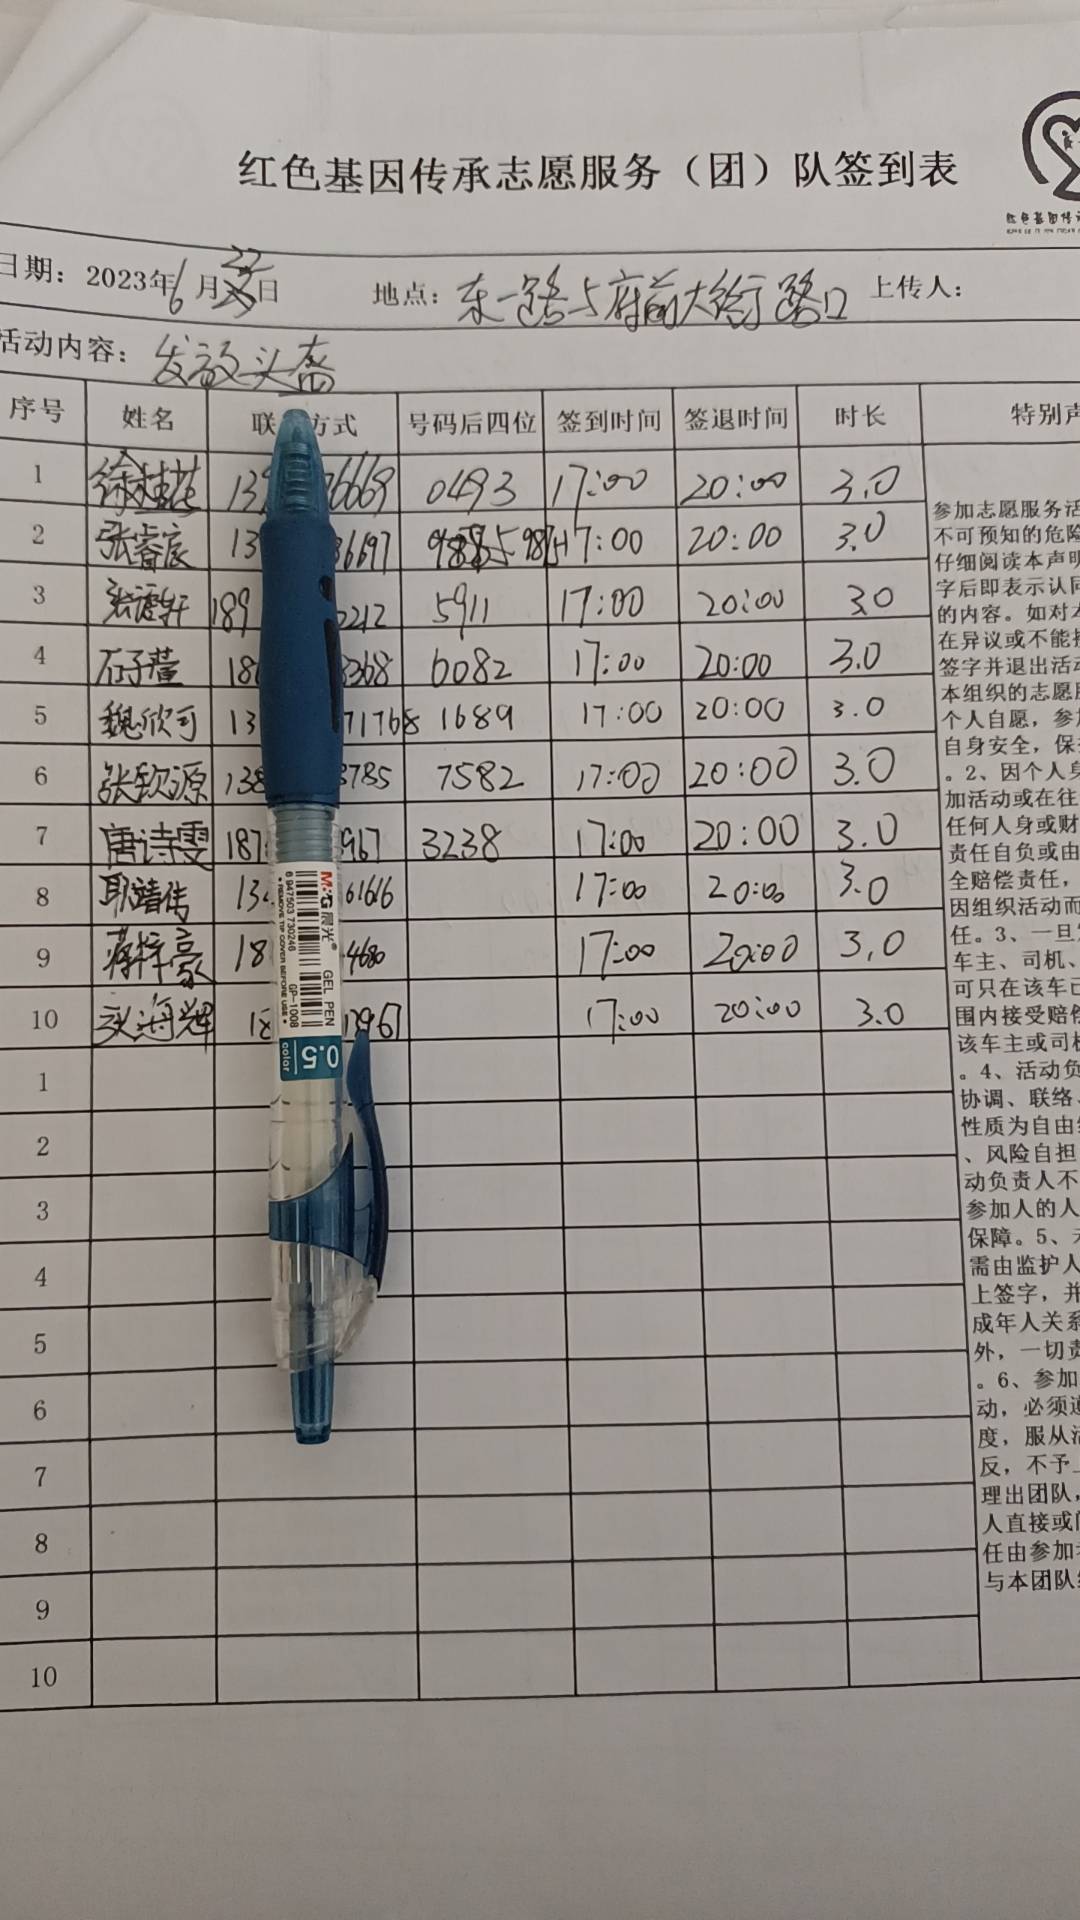 红色基因传承志愿服务（团）队签到表
日期：2023年6月22日 地点：东一路与府前大街路口 上传人：
活动内容：发放头盔
序号 姓名 联 方式 号码后四位 签到时间 签退时间 时长 特别声
1 徐桂花 13 6669 0493 17:00 20:00 3.0
2 张睿宸 13 36697 9875 17:00 20:00 3.0
3 189 2212 5911 17:00 20:00 3.0
4 石子萱 18 3368 6082 17:00 20:00 3.0
5 魏欣可 13 71768 1689 17:00 20:00 3.0
6 张钦源 138 3785 7582 17:00 20:00 3.0
7 唐诗雯 187 967 3238 17:00 20:00 3.0
8 13 61616 17:00 20:00 3.0
9 蒋梓豪 18 4680 17:00 20:00 3.0
10 18 12967 17:00 20:00 3.0
1
2
3
4
5
6
7
8
9
10
参加志愿服务活
不可预知的危险
仔细阅读本声明
字后即表示认同
的内容。如对本
在异议或不能接
签字并退出活动
本组织的志愿服
个人自愿，参加
自身安全，保
。2、因个人身
加活动或在往
任何人身或财
责任自负或由
全赔偿责任，
因组织活动而
任。3、一旦
车主、司机、
可只在该车已
围内接受赔偿
该车主或司机
。4、活动负
协调、联络、
性质为自由
、风险自担
动负责人不
参加人的人
保障。5、未
需由监护人
上签字，并
成年人关系
外，一切责
。6、参加
动，必须遵
度，服从活
反，不予
理出团队，
人直接或间
任由参加
与本团队
M&G晨光 GEL PEN
GP-1008
6 947503 730246
REMOVE TIP COVER BEFORE USE
0.5 color